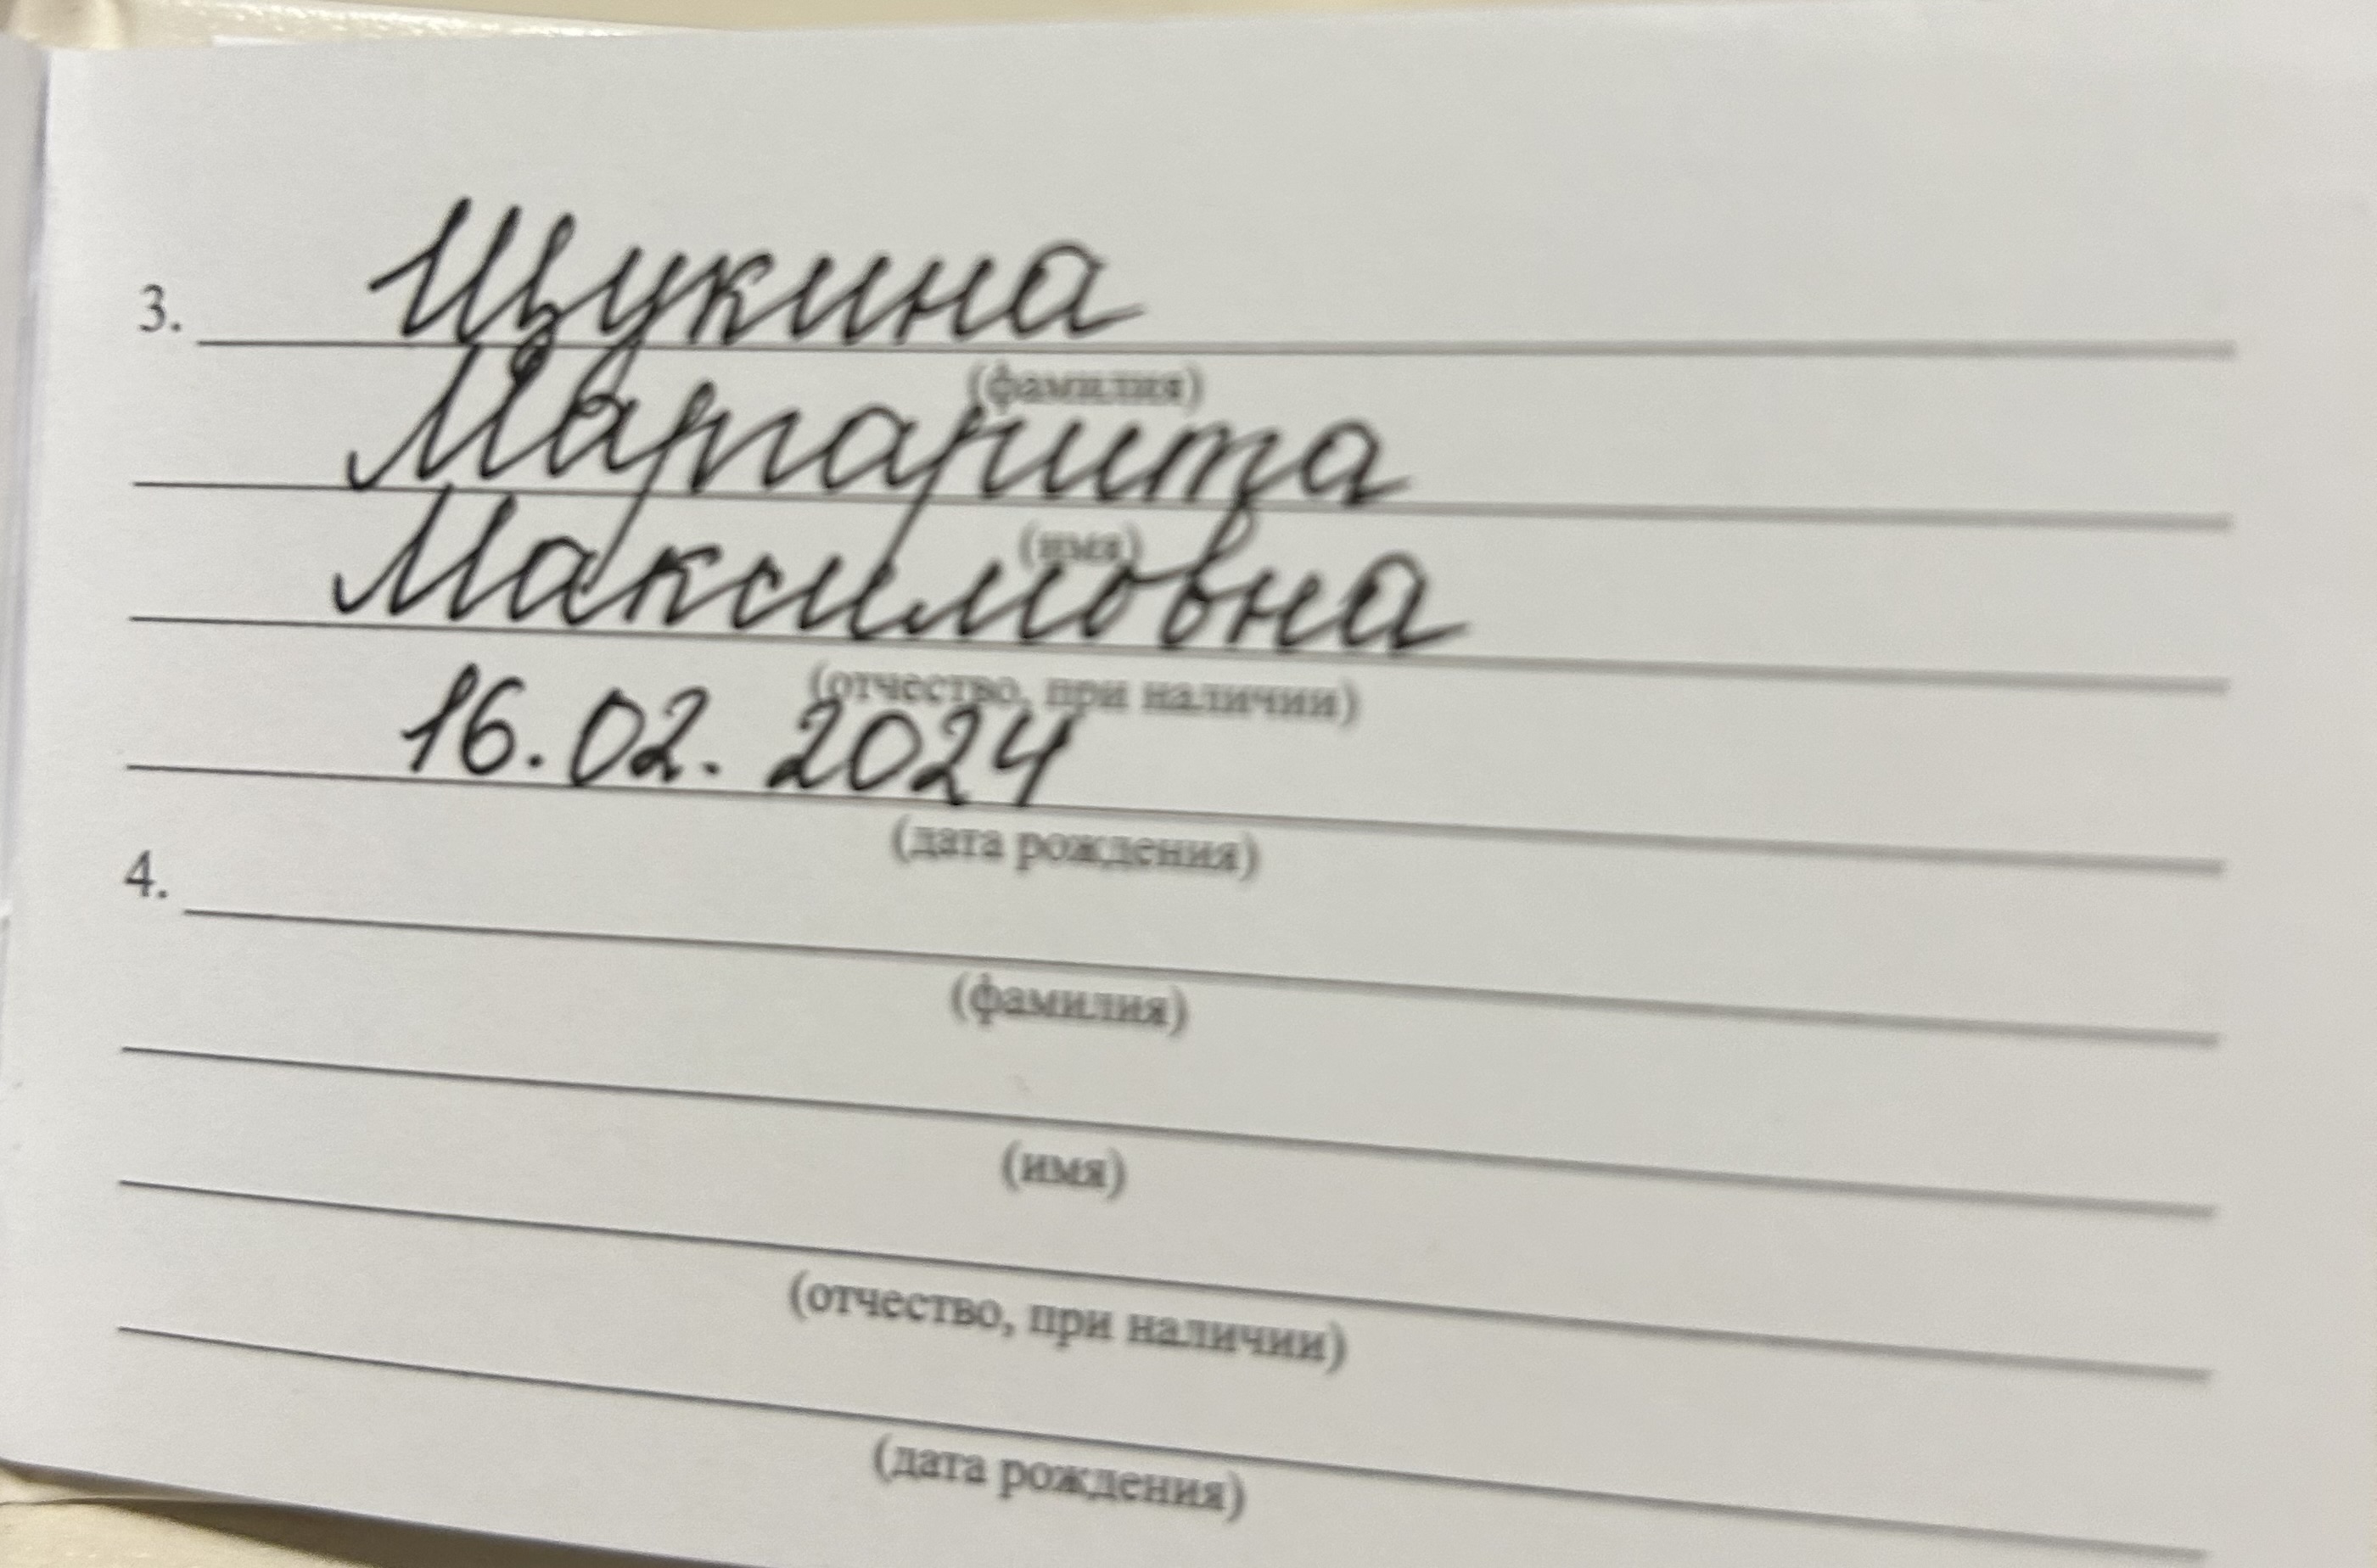 3. Щукина
(фамилия)
Маргарита
(имя)
Максимовна
(отчество, при наличии)
16.02.2024
(дата рождения)
4.
(фамилия)
(имя)
(отчество, при наличии)
(дата рождения)